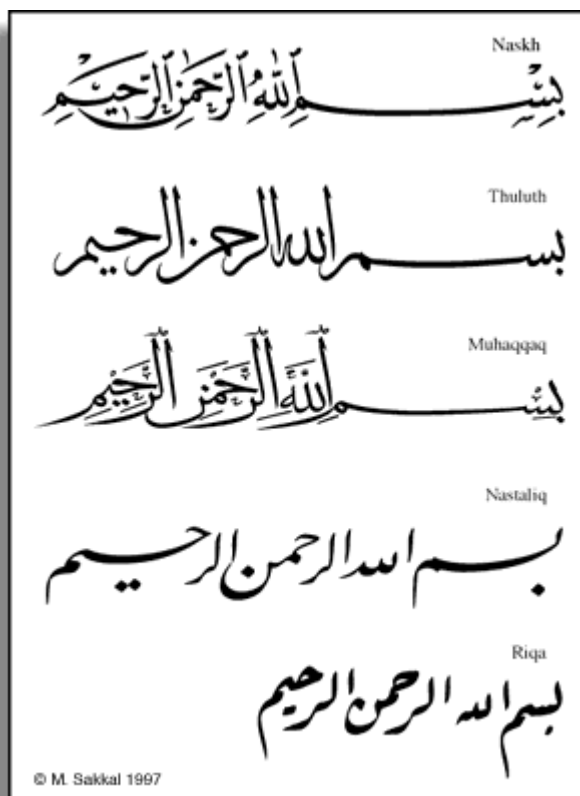 Naskh
بِسْمِ اللهِ الرَّحْمٰنِ الرَّحِيْمِ
Thuluth
بسم الله الرحمن الرحيم
Muhaqqaq
بِسْمِ اللَّهِ الرَّحْمٰنِ الرَّحِيْمِ
Nastaliq
بسم الله الرحمن الرحيم
Riqa
بسم الله الرحمن الرحيم
© M. Sakkal 1997